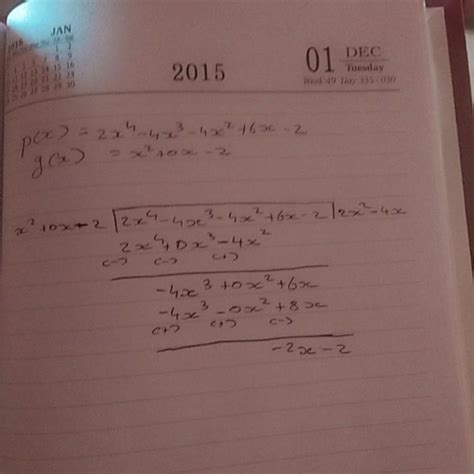 2016 JAN
2015
01 DEC
Tuesday
Week 49 Day 335-030
p(x) = 2x⁴-4x³-4x²+6x-2
g(x) = x²+0x-2
x²+0x-2 | 2x⁴-4x³-4x²+6x-2 | 2x²-4x
2x⁴+0x³-4x²
(-) (-) (+)
-4x³+0x²+6x
-4x³-0x²+8x
(+) (+) (-)
-2x-2